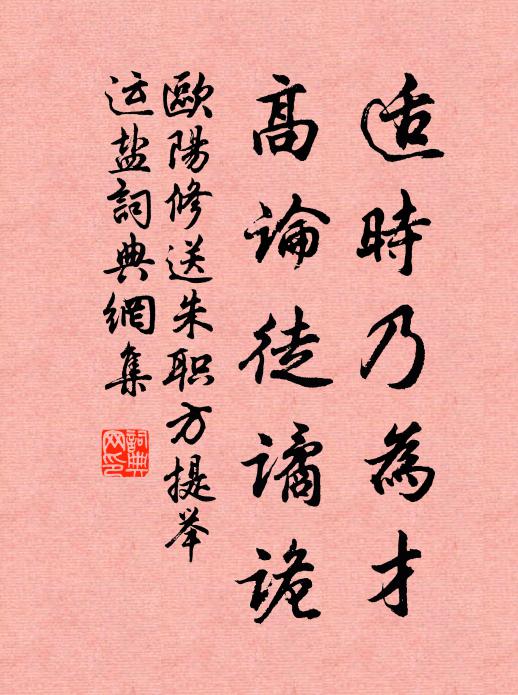 适時乃為才
高論徒譎詭
歐陽修送朱职方提举
运盐詞典網集
詞典网印